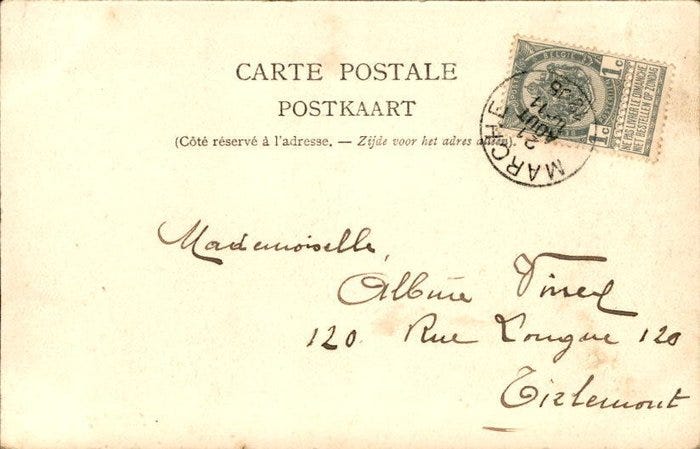 CARTE POSTALE
POSTKAART
(Côté réservé à l'adresse. — Zijde voor het adres alleen).
BELGIE
1c
1c
NE PAS LIVRER LE DIMANCHE
NIET BESTELLEN OP ZONDAG
MARCHE
21
AOUT
11
05
Mademoiselle,
Albine
120 Rue Longue 120
Tirlemont